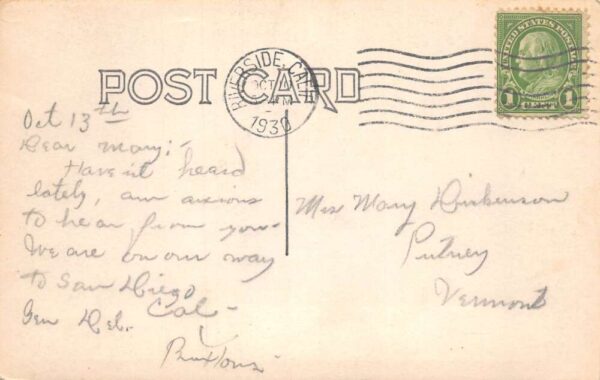 POST CARD
RIVERSIDE, CALIF.
OCT
M
1930
UNITED STATES POSTAGE
1 CENT 1
Oct 13th
Dear Mary:-
Haven't heard
lately, am anxious
to hear from you-
We are on our way
to San Diego
Cal-
Gen Del.
Mrs Mary Dickenson
Putney
Vermont